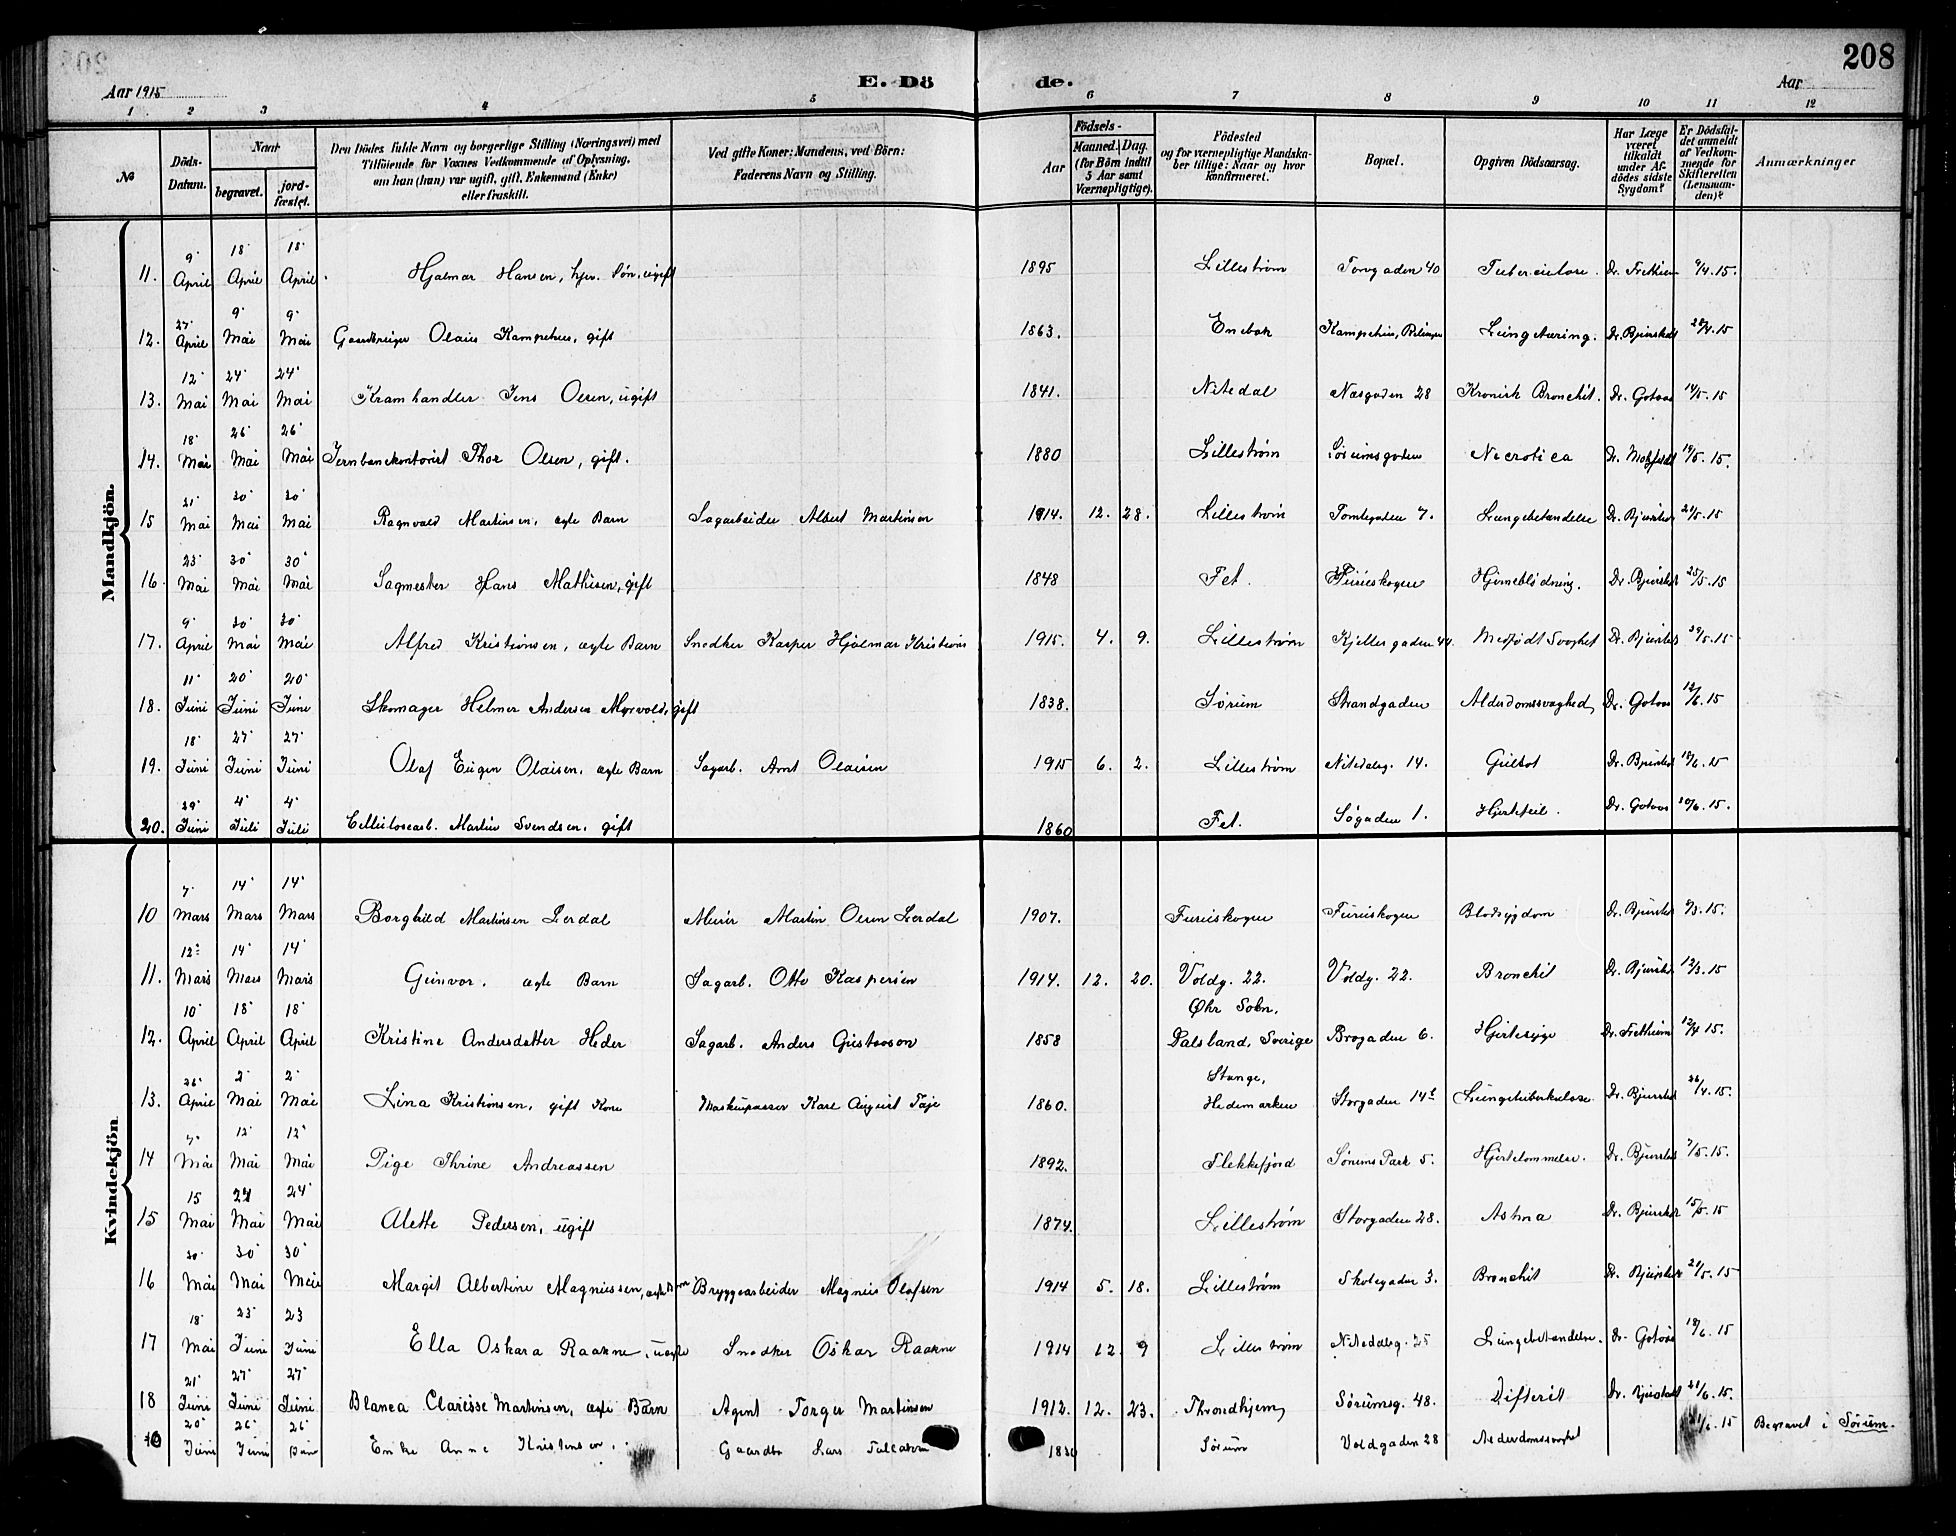 208
Aar 1915 E. Dö de. Aar
1 2 3 4 5 6 7 8 9 10 11 12
No
Döds-Datum.
Naar
begravet.
jord-fæstet.
Den Dödes fulde Navn og borgerlige Stilling (Næringsvei) med
Tilföiende for Voxnes Vedkommende af Oplysning,
om han (hun) var ugift, gift, Enkemand (Enke)
eller fraskilt.
Ved gifte Koner: Mandens, ved Börn:
Faderens Navn og Stilling.
Födsels-
Aar
Maaned. Dag.
(for Börn indtil
5 Aar samt
Værnepligtige).
Födested
og for værnepligtige Mandska-
ber tillige: Naar og hvor
konfirmeret.
Bopæl.
Opgiven Dödsaarsag.
Har Læge
været
tilkaldt
under Af-
dödes sidste
Sygdom?
Er Dödsfal-
det anmeldt
af Vedkom-
mende for
Skifteretten
(Lensman-
den)?
Anmærkninger
Mandkjön.
11. 9 April 18 April 18 April Hjalmar Hansen, hjv. Søn, ugift 1895 Lillestrøm Torvgaden 40 Tuberculose. Dr. Frethiem 9/4.15.
12. 27 April 9 Mai 9 Mai Olaus Kampehus, gift 1863. Enebak Kampehus, Rælingen Lungetæring. Dr. Bjunstedt 28/4.15
13. 12 Mai 24 Mai 24 Mai Kramhandler Jens Olsen, ugift 1841. Nitedal Næsgaden 28 Kronisk Bronchit. Dr. Gotaas 14/5.15
14. 18 Mai 26 Mai 26 Mai Jernbanekontorist Thor Olsen, gift. 1880 Lillestrøm Sørumsgaden Necrotica Dr. 19/5.15.
15 21 Mai 30 Mai 30 Mai Ragnvald Martinsen, ægte Barn Sagarbeider Albert Martinsen 1914. 12. 28. Lillestrøm Tomtegaden 7. Lungebetændelse Dr. Bjunsted 21/5.15
16 23 Mai 30 Mai 30 Mai Sagmester Hans Mathisen, gift 1848 Fet. Furuskogen Hjerneblødning. Dr. Bjunsted 25/5.15
17. 9 April 30 Mai 30 Mai Alfred Kristiansen, ægte Barn Snedker Kasper Hjalmar Kristians 1915. 4. 9. Lillestrøm Kjellergaden 44. Medfødt Svaghet Dr. Bjunsted 29/5.15
18. 11 Juni 20 Juni 20 Juni Skomager Helmer Andersen Myrvold, gift 1838. Sørum Strandgaden Alderdomssvaghed, Dr. Gotaas 12/6.15
19. 18 Juni 27 Juni 27 Juni Olaf Eugen Olaisen, ægte Barn Sagarb. Arnt Olaisen 1915 6. 2. Lillestrøm Nitedalsg. 14. Gulsot Dr. Bjunsted 18/6.15
20. 29 Juni 4 Juli 4 Juli Cellulosearb. Martin Svendsen, gift 1860 Fet. Søgaden 1. Hjertefeil. Dr. Gotaas 30/6.15.
Kvindekjön
10 7 Mars 14 Mars 14 Mars Borghild Martinsen Lerdal Murer Martin Olsen Lerdal 1907. Furuskogen Furuskogen Blodsygdom Dr. Bjunsted 9/3.15.
11. 12 Mars 14 Mars 14 Mars Gunvor, ægte Barn Sagarb. Otto Kaspersen 1914. 12. 20. Voldg. 22. Voldg. 22. Bronchit Dr. Bjunsted 12/3.15
12. 10 April 18 April 18 April Kristine Andersdatter Heder Sagarb. Anders Gustavson 1858 Øhr Sokn, Dalsland, Sverige Brogaden 6. Hjertesyge Dr. Frethiem 12/4.15.
13. 26 April 2 Mai 2 Mai Lina Kristiansen, gift Kone Maskinpasser Karl August Taje 1860. Stange, Hedemarken Storgaden 14 Lungetuberkulose Dr. Bjunsted 26/4.15.
14 7 Mai 12 Mai 12 Mai Pige Thrine Andreassen 1892. Flekkefjord Sørums Park 5. Hjertelammelse. Dr. Bjunsted 7/5.15.
15 15 Mai 24 Mai 24 Mai Alette Pedersen, ugift 1874. Lillestrøm Storgaden 28. Astma Dr. Bjunsted 15/5.15
16 20 Mai 30 Mai 30 Mai Margit Albertine Magnussen, ægte Barn Bryggearbeider Magnus Olafsen 1914 5. 18. Lillestrøm Skolegaden 3. Bronchit Dr. Bjunsted 21/5.15
17 18 Mai 23 Juni 23 Juni Ella Oskara Raakne, uægte Snedker Oskar Raakne 1914 12. 9 Lillestrøm Nitedalsg. 25 Lungebetændelse. Dr. Gotaas 18/6.15
18 21 Juni 27 Juni 27 Juni Blanca Clarisse Martinsen, ægte Barn Agent Torger Martinsen 1912. 12. 23. Throndhjem, Sørumsg. 48. Difterit Dr. Bjunstedt 21/6.15.
20 Juni 26 Juni 26 Juni Enke Anne Kristensen Gaardbr Lars 1830 Sørum Voldgaden 28 Alderdomssvaghet 21/6.15 Begravet i Sørum.